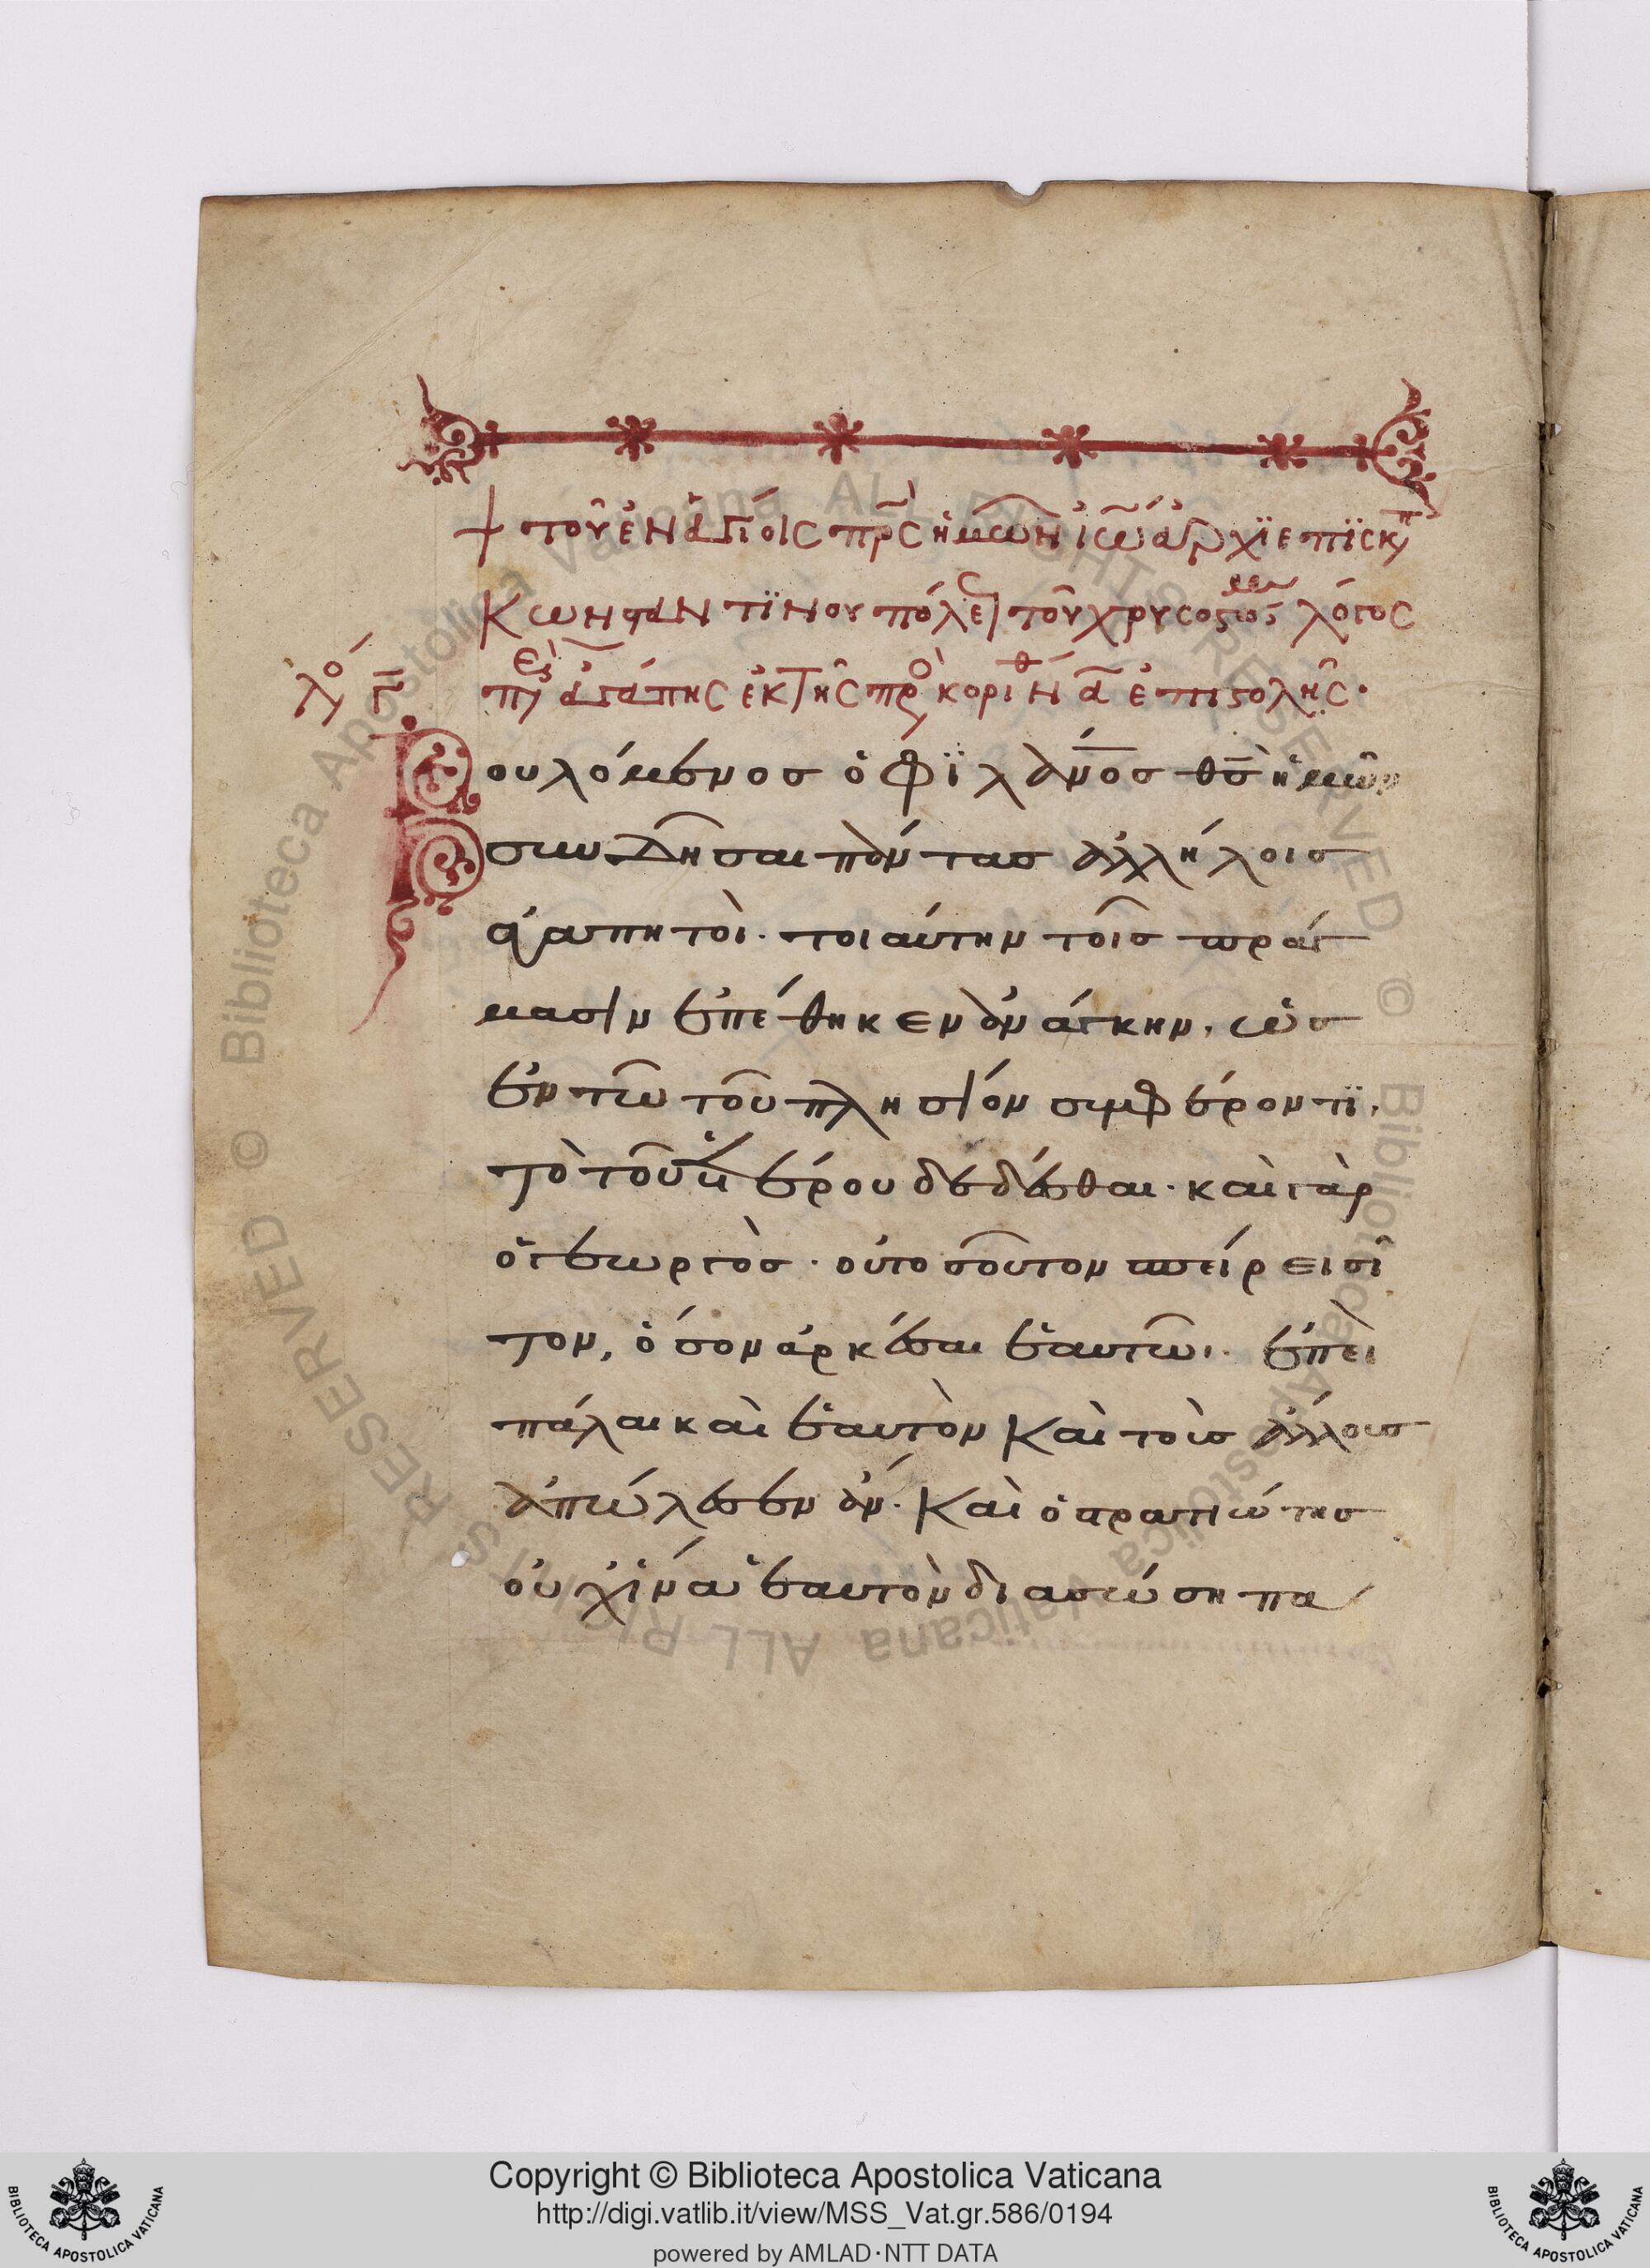 + τοῦ ἐν ἁγίοις πρ̅ς ἡμῶν ἰω̅ ἀρχϊεπϊσκπ
κωνσταντϊνουπόλε τοῦ χρυσοστομ λόγος
λό γ̅ πε ἀγάπης ἐκ τῆς πρὸ κορινθ α̅ ἐπιστολῆς·
Βουλόμενος ὁ φϊλαν̅ος θ̅σ̅ ἡμῶν
συνδῆσαι πάντας ἀλλήλοις
ἀγαπητοὶ· τοιαύτην τοῖς πράγ
μασιν ἐπέθηκεν ἀνάγκην, ὡς
ἐν τῶ τοῦ πλησίον συμφέροντϊ,
τὸ τοῦ ἑτέρου δεδέσθαι· καὶ γὰρ
ὁ γεωργὸς· οὐ τοσοῦτον σπείρει σῖ
τον, ὅσον ἀρκέσαι ἑαυτῶι· ἐπεὶ
πάλαι καὶ ἑαυτὸν καὶ τοὺς ἄλλους
ἀπώλεσεν ἄν· καὶ ὁ στρατιώτης
οὐχ ἵνα ἑαυτὸν διασώση πα
Copyright © Biblioteca Apostolica Vaticana
http://digi.vatlib.it/view/MSS_Vat.gr.586/0194
powered by AMLAD·NTT DATA
BIBLIOTECA APOSTOLICA VATICANA
BIBLIOTECA APOSTOLICA VATICANA
Biblioteca Apostolica Vaticana ALL RIGHTS RESERVED ©
Biblioteca Apostolica Vaticana ALL RIGHTS RESERVED ©